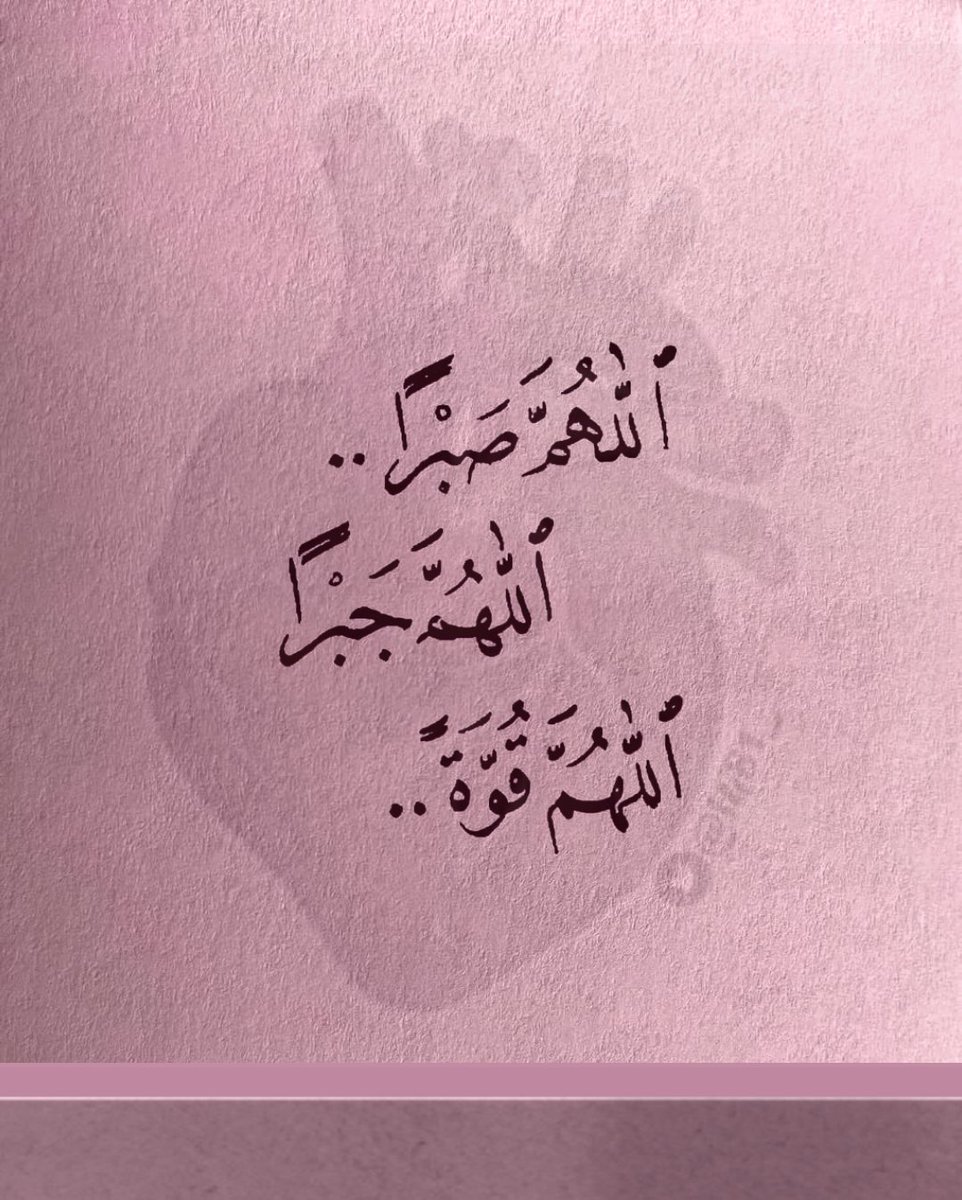 ٱللَّٰهُمَّ صَبْرًا ..
ٱللَّٰهُمَّ جَبْرًا
ٱللَّٰهُمَّ قُوَّةً ..